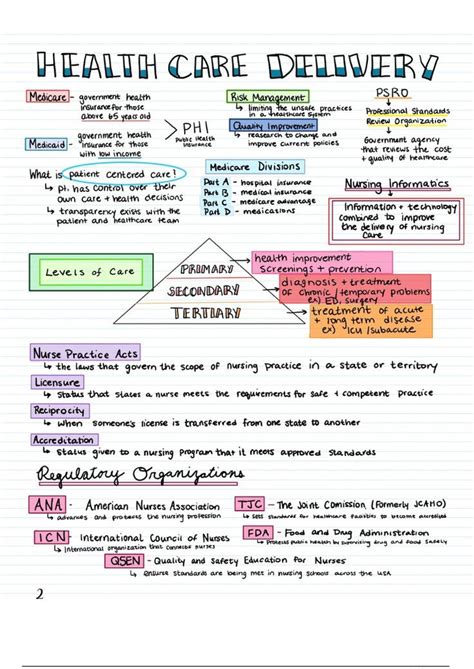 HEALTH CARE DELIVERY
Medicare - government health
insurance for those
above 65 years old
Medicaid - government health
insurance for those
with low income
> PHI
Public Health
Insurance
Risk Management
↳ limiting the unsafe practices
in a healthcare system
Quality Improvement
↳ research to change +
improve current policies
PSRO
Professional Standards
Review Organization
Government agency
that reviews the cost
+ quality of healthcare
What is patient centered care?
↳ pt. has control over their
own care + health decisions
↳ transparency exists with the
patient and healthcare team
Medicare Divisions
Part A - hospital insurance
Part B - medical insurance
Part C - medicare advantage
Part D - medications
Nursing Informatics
Information + technology
combined to improve
the delivery of nursing
care
Levels of Care
PRIMARY
health improvement
screenings + prevention
SECONDARY
diagnosis + treatment
of chronic / temporary problems
ex) ED, surgery
TERTIARY
treatment of acute
+ long term disease
ex) ICU/subacute
Nurse Practice Acts
↳ the laws that govern the scope of nursing practice in a state or territory
Licensure
↳ status that states a nurse meets the requirements for safe + competent practice
Reciprocity
↳ when someone's license is transferred from one state to another
Accreditation
↳ status given to a nursing program that it meets approved standards
Regulatory Organizations
ANA - American Nurses Association
↳ advances and protects the nursing profession
TJC - The Joint Comission (Formerly JCAHO)
↳ sets standards for healthcare facilities to become accredited
ICN - International Council of Nurses
↳ International organization that connects nurses
FDA - Food and Drug Administration
↳ Protects public health by supervising drug and food safety
QSEN - Quality and Safety Education for Nurses
↳ ensure standards are being met in nursing schools across the USA
2